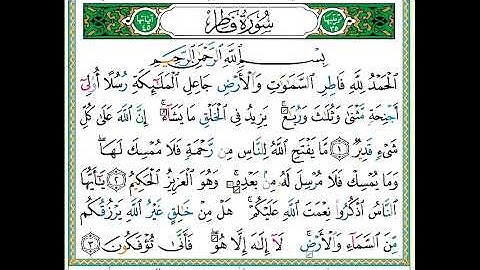 سُورَةُ فَاطِرٍ
بِسْمِ اللَّهِ الرَّحْمَٰنِ الرَّحِيمِ
الْحَمْدُ لِلَّهِ فَاطِرِ السَّمَاوَاتِ وَالْأَرْضِ جَاعِلِ الْمَلَائِكَةِ رُسُلًا أُولِي
أَجْنِحَةٍ مَّثْنَىٰ وَثُلَاثَ وَرُبَاعَ ۚ يَزِيدُ فِي الْخَلْقِ مَا يَشَاءُ ۚ إِنَّ اللَّهَ عَلَىٰ كُلِّ
شَيْءٍ قَدِيرٌ ١ مَّا يَفْتَحِ اللَّهُ لِلنَّاسِ مِن رَّحْمَةٍ فَلَا مُمْسِكَ لَهَا ۖ
وَمَا يُمْسِكْ فَلَا مُرْسِلَ لَهُ مِن بَعْدِهِ ۚ وَهُوَ الْعَزِيزُ الْحَكِيمُ ٢ يَا أَيُّهَا
النَّاسُ اذْكُرُوا نِعْمَتَ اللَّهِ عَلَيْكُمْ ۚ هَلْ مِنْ خَالِقٍ غَيْرُ اللَّهِ يَرْزُقُكُم
مِّنَ السَّمَاءِ وَالْأَرْضِ ۚ لَا إِلَٰهَ إِلَّا هُوَ ۖ فَأَنَّىٰ تُؤْفَكُونَ ٣